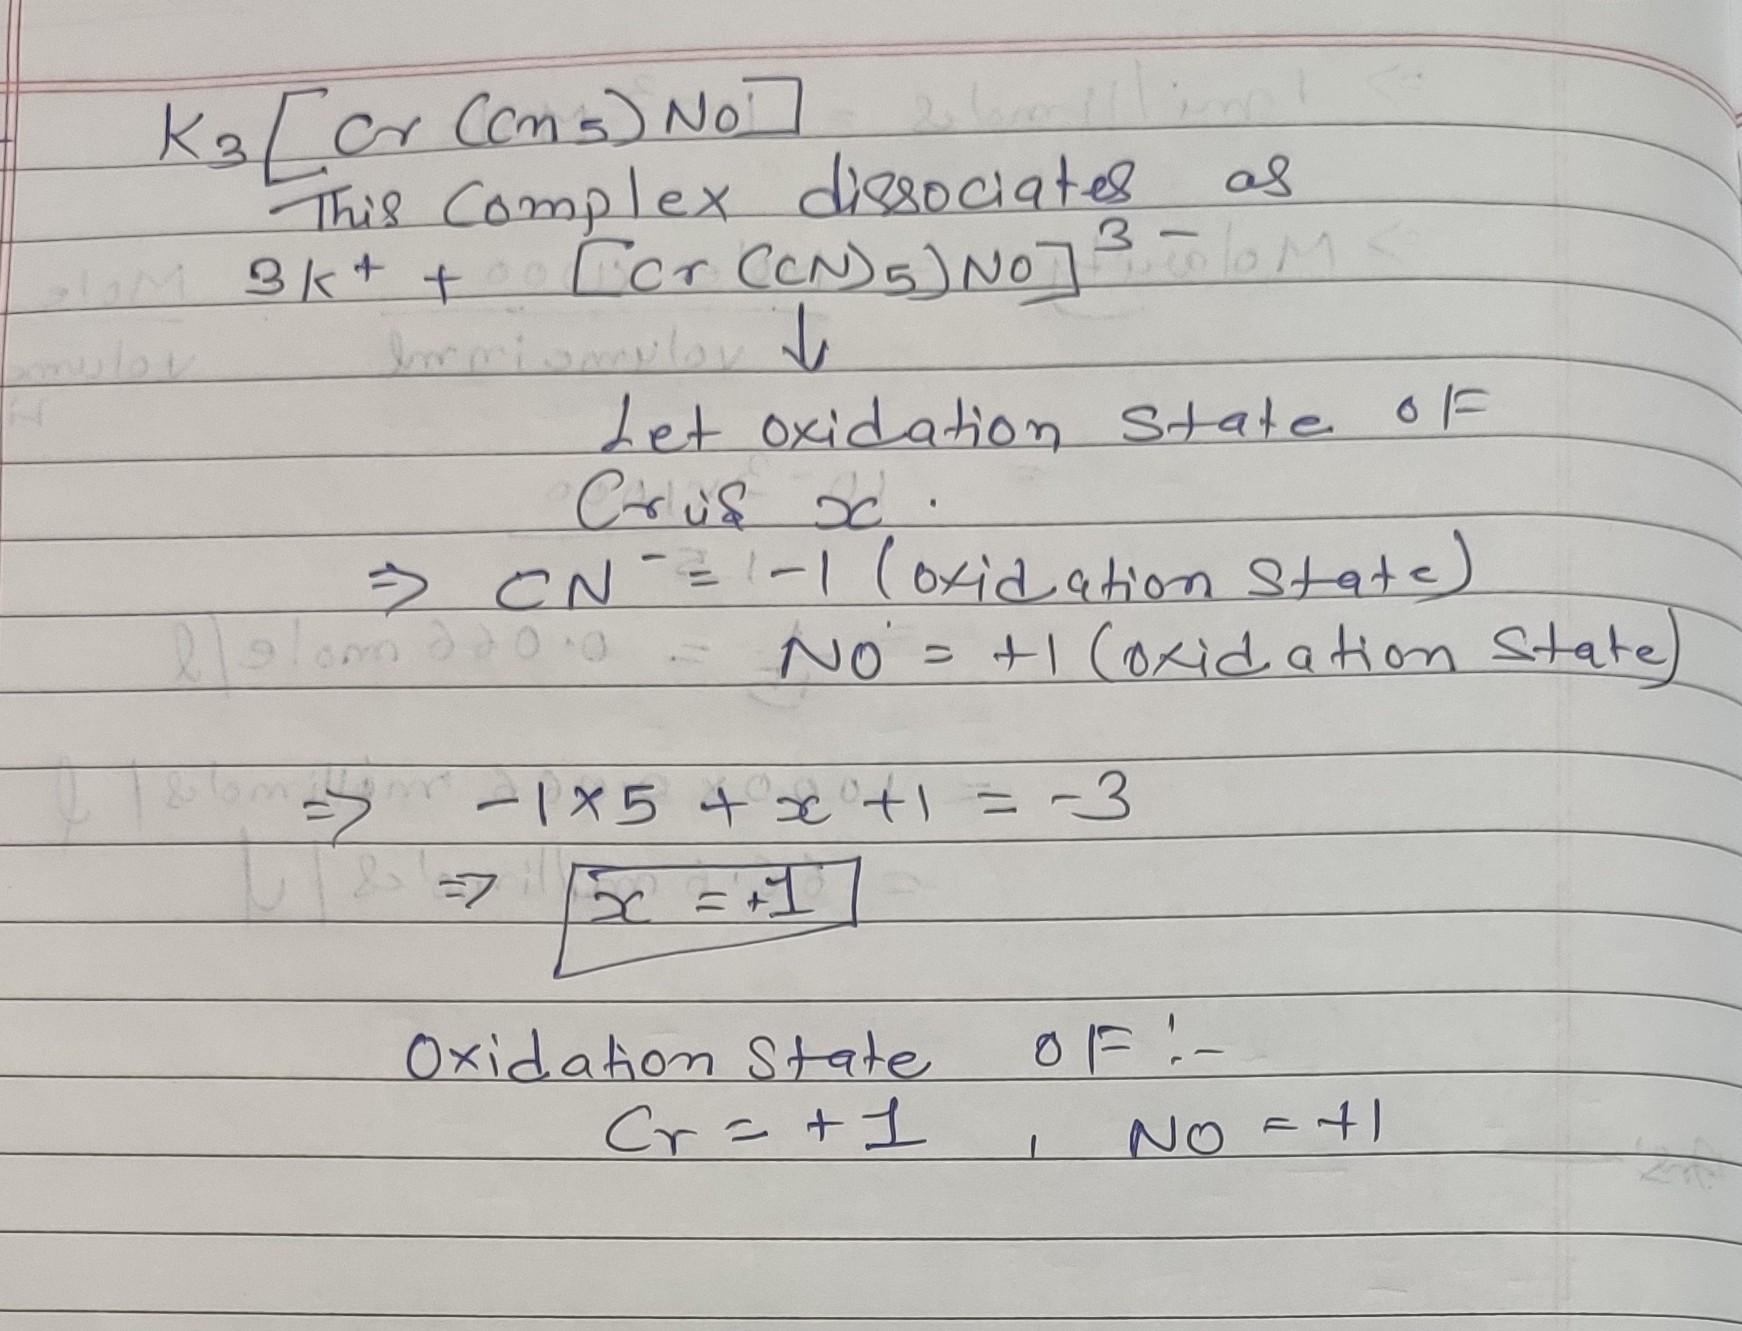 K3[Cr(CN5)NO]
This Complex dissociates as
3K+ + [Cr(CN)5)NO]3-
↓
Let oxidation State OF
Cr is x.
⇒ CN- = -1 (oxidation State)
NO = +1 (oxidation State)
⇒ -1×5 + x + 1 = -3
⇒ x = +1
Oxidation State OF :-
Cr = +1 , NO = +1